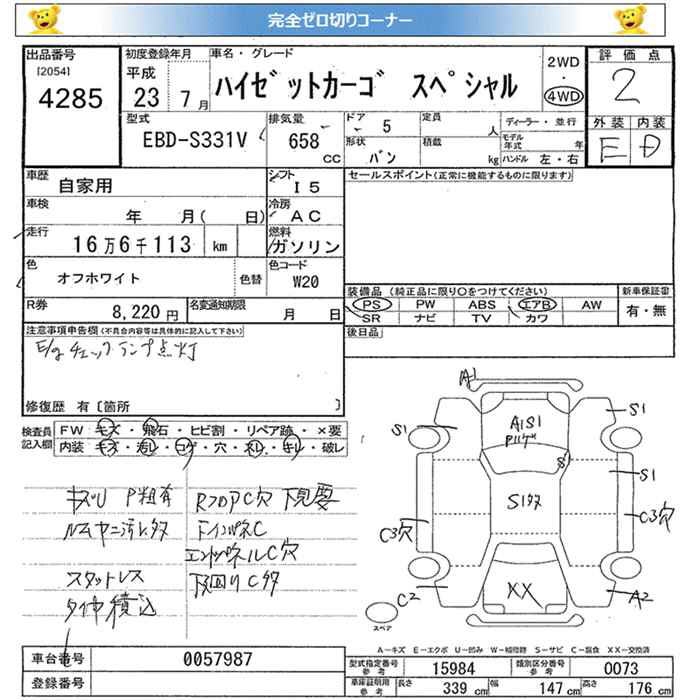 完全ゼロ切りコーナー
出品番号
[2054]
4285
初度登録年月
平成
23 7月
車名・グレード
ハイゼットカーゴ スペシャル
2WD
・
4WD
評価点
2
外装 内装
E D
型式
EBD-S331V
排気量
658
CC
ドア 5
形状 バン
定員 人
積載 kg
ディーラー・並行
モデル年式 年
ハンドル 左・右
車歴
自家用
シフト
I5
車検
年 月( 日)
冷房
AC
走行
16万6千113 km
燃料
ガソリン
色
オフホワイト
色替
色コード
W20
R券
8,220円
名変通知期限
月 日
セールスポイント(正常に機能するものに限ります)
装備品(純正品に限り○をつけてください)
PS PW ABS エアB AW
SR ナビ TV カワ
新車保証書
有・無
後日品
注意事項申告欄(不具合内容等は具体的に記入して下さい)
E/gチェックランプ点灯
修復歴 有〔箇所 〕
検査員記入欄
FW キズ・飛石・ヒビ割・リペア跡・×要
内装 キズ・汚レ・コゲ・穴・ネレ・キレ・破レ
キズU P粗有
RフロアC穴 下見要
内ムヤニ汚レ多
下インパネC
エンドパネルC穴
スタットレス
下回りC多
タイヤ積込
A1
S1
A1S1
S1
S1
S1
S1多
C3穴
C3穴
C2
XX
A2
スペア
A-キズ E-エクボ U-凹み W-補修跡 S-サビ C-腐食 XX-交換済
車台番号
0057987
登録番号
型式指定番号
参考
15984
類別区分番号
参考
0073
車庫証明用
参考
長さ 339 cm
幅 147 cm
高さ 176 cm